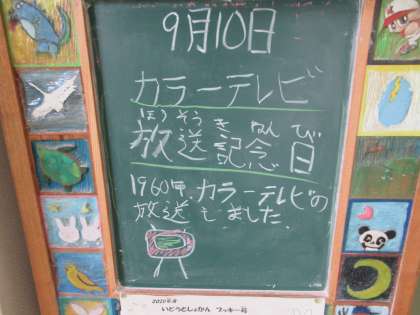 9月10日
カラーテレビ
ほうそう きねん び
放送記念日
1960年、カラーテレビの
放送しました
2020年度
いどうとしょかん クッキー号